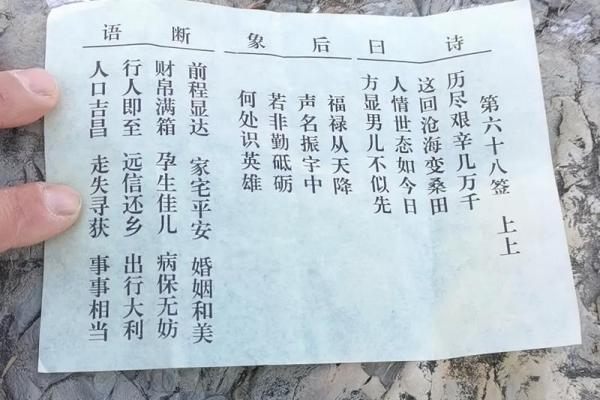 诗曰
第六十八签 上上
历尽艰辛几万千
这回沧海变桑田
人情世态如今日
方显男儿不似先
后象
福禄从天降
声名振宇中
若非勤砥砺
何处识英雄
断语
前程显达 家宅平安 婚姻和美
财帛满箱 孕生佳儿 病保无妨
行人即至 远信还乡 出行大利
人口吉昌 走失寻获 事事相当